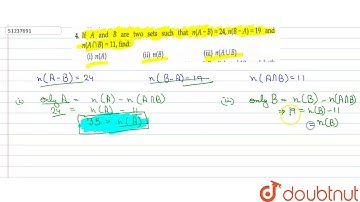 51237691
4. If A and B are two sets such that n(A−B) = 24, n(B−A) = 19 and
n(A∩B) = 11, find:
(i) n(A) (ii) n(B) (iii) n(A∪B)
n(A-B) = 24 n(B-A) = 19 n(A∩B) = 11
(i) only A = n(A) - n(A∩B)
24 = n(A) - 11
35 = n(A)
(ii) only B = n(B) - n(A∩B)
⇒ 19 = n(B) - 11
= n(B)
doubtnut